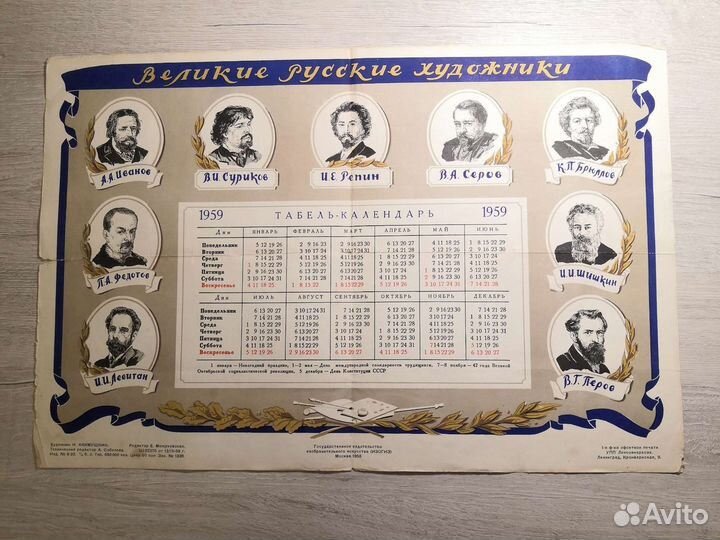 Великие русские художники
А.А.Иванов
В.И.Суриков
И.Е.Репин
В.А.Серов
К.П.Брюллов
П.А.Федотов
И.И.Шишкин
И.И.Левитан
В.Г.Перов
1959 ТАБЕЛЬ-КАЛЕНДАРЬ 1959
Дни ЯНВАРЬ ФЕВРАЛЬ МАРТ АПРЕЛЬ МАЙ ИЮНЬ
Понедельник 5 12 19 26 2 9 16 23 2 9 16 23 30 6 13 20 27 4 11 18 25 1 8 15 22 29
Вторник 6 13 20 27 3 10 17 24 3 10 17 24 31 7 14 21 28 5 12 19 26 2 9 16 23 30
Среда 7 14 21 28 4 11 18 25 4 11 18 25 1 8 15 22 29 6 13 20 27 3 10 17 24
Четверг 1 8 15 22 29 5 12 19 26 5 12 19 26 2 9 16 23 30 7 14 21 28 4 11 18 25
Пятница 2 9 16 23 30 6 13 20 27 6 13 20 27 3 10 17 24 1 8 15 22 29 5 12 19 26
Суббота 3 10 17 24 31 7 14 21 28 7 14 21 28 4 11 18 25 2 9 16 23 30 6 13 20 27
Воскресенье 4 11 18 25 1 8 15 22 1 8 15 22 29 5 12 19 26 3 10 17 24 31 7 14 21 28
Дни ИЮЛЬ АВГУСТ СЕНТЯБРЬ ОКТЯБРЬ НОЯБРЬ ДЕКАБРЬ
Понедельник 6 13 20 27 3 10 17 24 31 7 14 21 28 5 12 19 26 2 9 16 23 30 7 14 21 28
Вторник 7 14 21 28 4 11 18 25 1 8 15 22 29 6 13 20 27 3 10 17 24 1 8 15 22 29
Среда 1 8 15 22 29 5 12 19 26 2 9 16 23 30 7 14 21 28 4 11 18 25 2 9 16 23 30
Четверг 2 9 16 23 30 6 13 20 27 3 10 17 24 1 8 15 22 29 5 12 19 26 3 10 17 24 31
Пятница 3 10 17 24 31 7 14 21 28 4 11 18 25 2 9 16 23 30 6 13 20 27 4 11 18 25
Суббота 4 11 18 25 1 8 15 22 29 5 12 19 26 3 10 17 24 31 7 14 21 28 5 12 19 26
Воскресенье 5 12 19 26 2 9 16 23 30 6 13 20 27 4 11 18 25 1 8 15 22 29 6 13 20 27
1 января — Новогодний праздник, 1—2 мая — День международной солидарности трудящихся, 7—8 ноября — 42 года Великой
Октябрьской социалистической революции, 5 декабря — День Конституции СССР
Художник Н. Редактор Е.
Технический редактор А. Соболева.
Государственное издательство
изобразительного искусства (ИЗОГИЗ)
Москва 1958
1-я ф-ка офсетной печати
УПП Ленсовнархоза.
Ленинград, Кронверкская, 9.
Avito